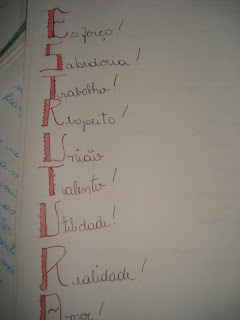 Esforço!
Sabedoria!
Trabalho!
Respeito!
União
Talento!
Utilidade!
Realidade!
Amor!